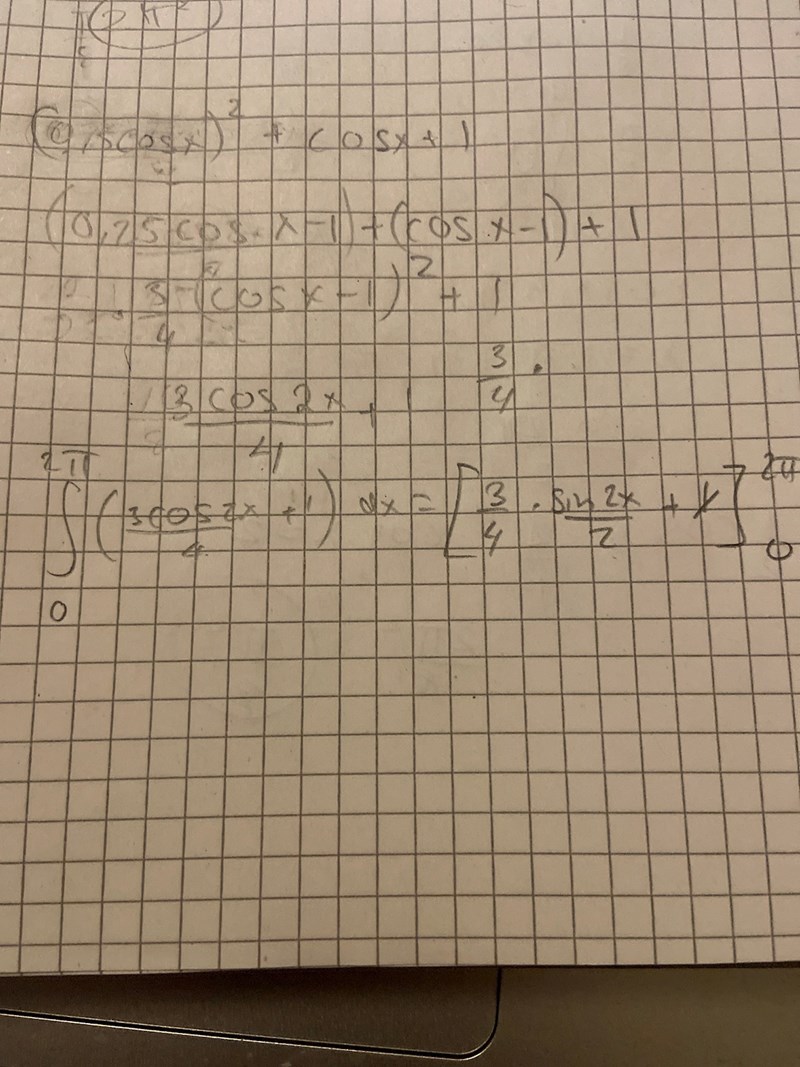 2 π²
(0,5cosx)² + cosx + 1
(0,25cos·x-1)+(cos·x-1)+1
3/4 (cosx-1)² + 1
3cos2x/4 + 1 3/4 ·
∫₀^2π (3cos2x/4 + 1) dx = [3/4 · sin2x/2 + x]₀^2π